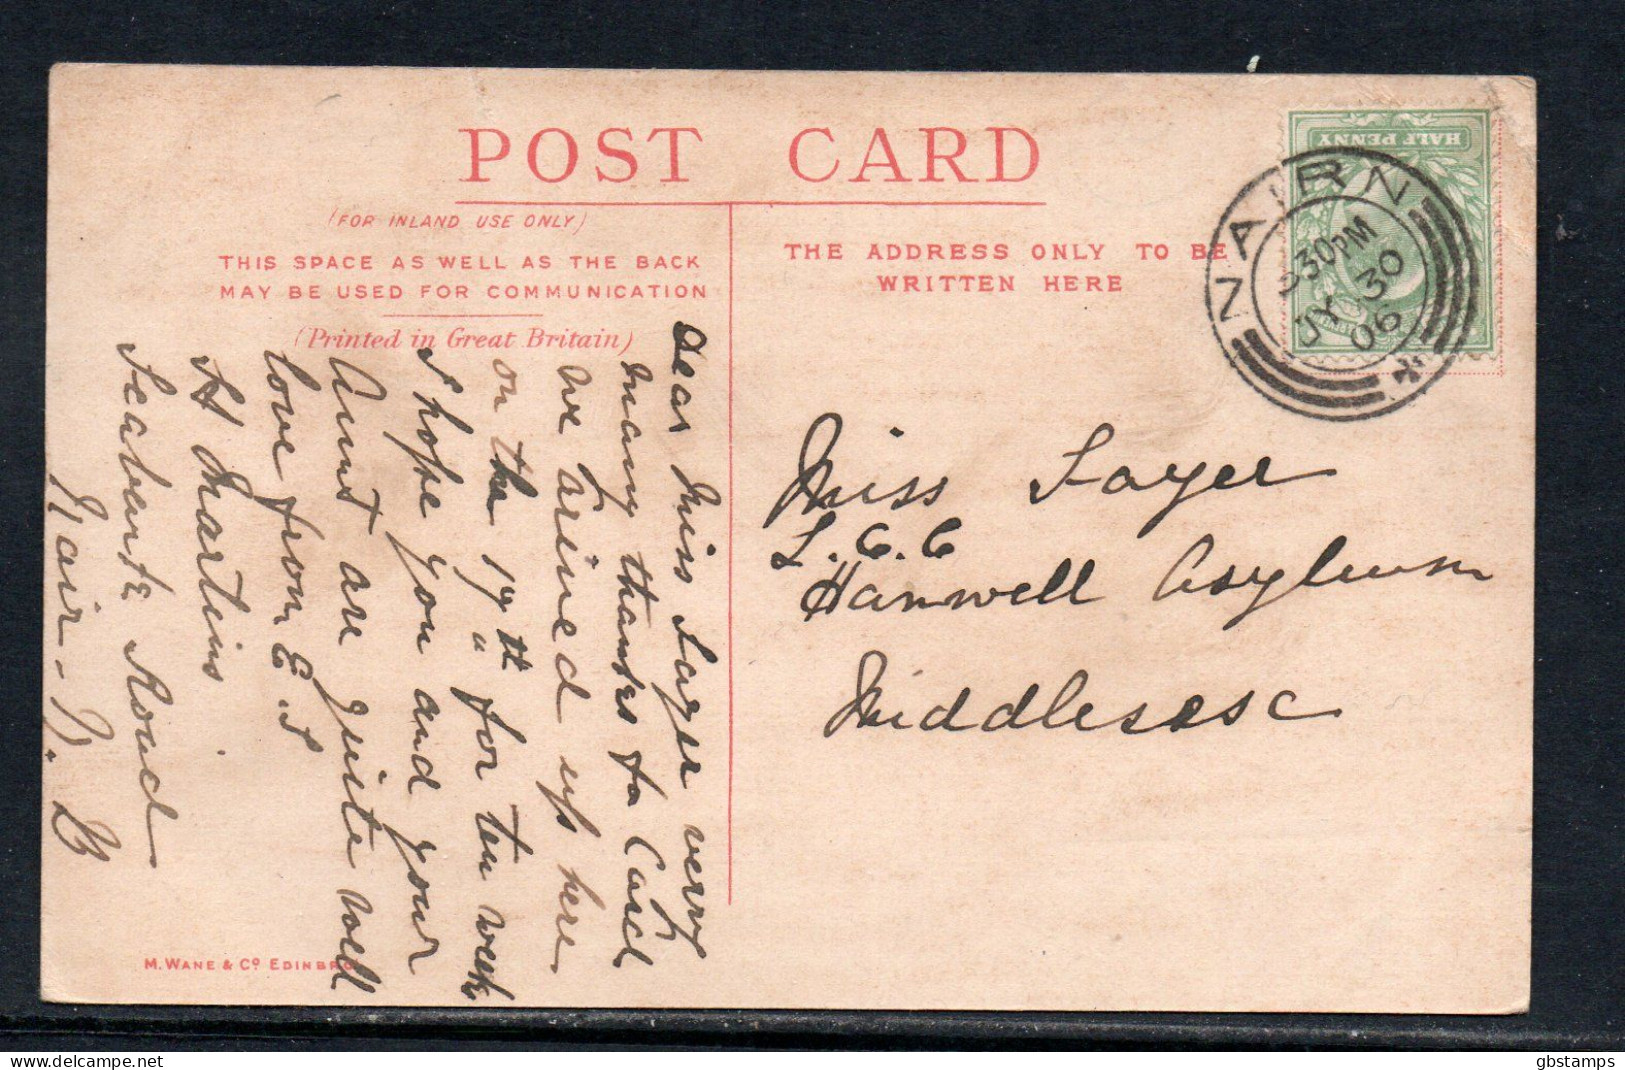 POST CARD
(FOR INLAND USE ONLY)
THIS SPACE AS WELL AS THE BACK
MAY BE USED FOR COMMUNICATION
(Printed in Great Britain)
THE ADDRESS ONLY TO BE
WRITTEN HERE
HALF PENNY
NAIRN
30PM
JY 30
06
Dear Miss Sayer very
many thanks for Card
we arived up here
on the 19th for ten week
I hope you and your
Aunt are quite well
love from E. S
St Martins
Seabank Road
Nair-N. B
Miss Sayer
L.C.C
Hanwell Asylum
Middlesesc
M. WANE & Co EDINBRO
gbstamps
delcampe.net